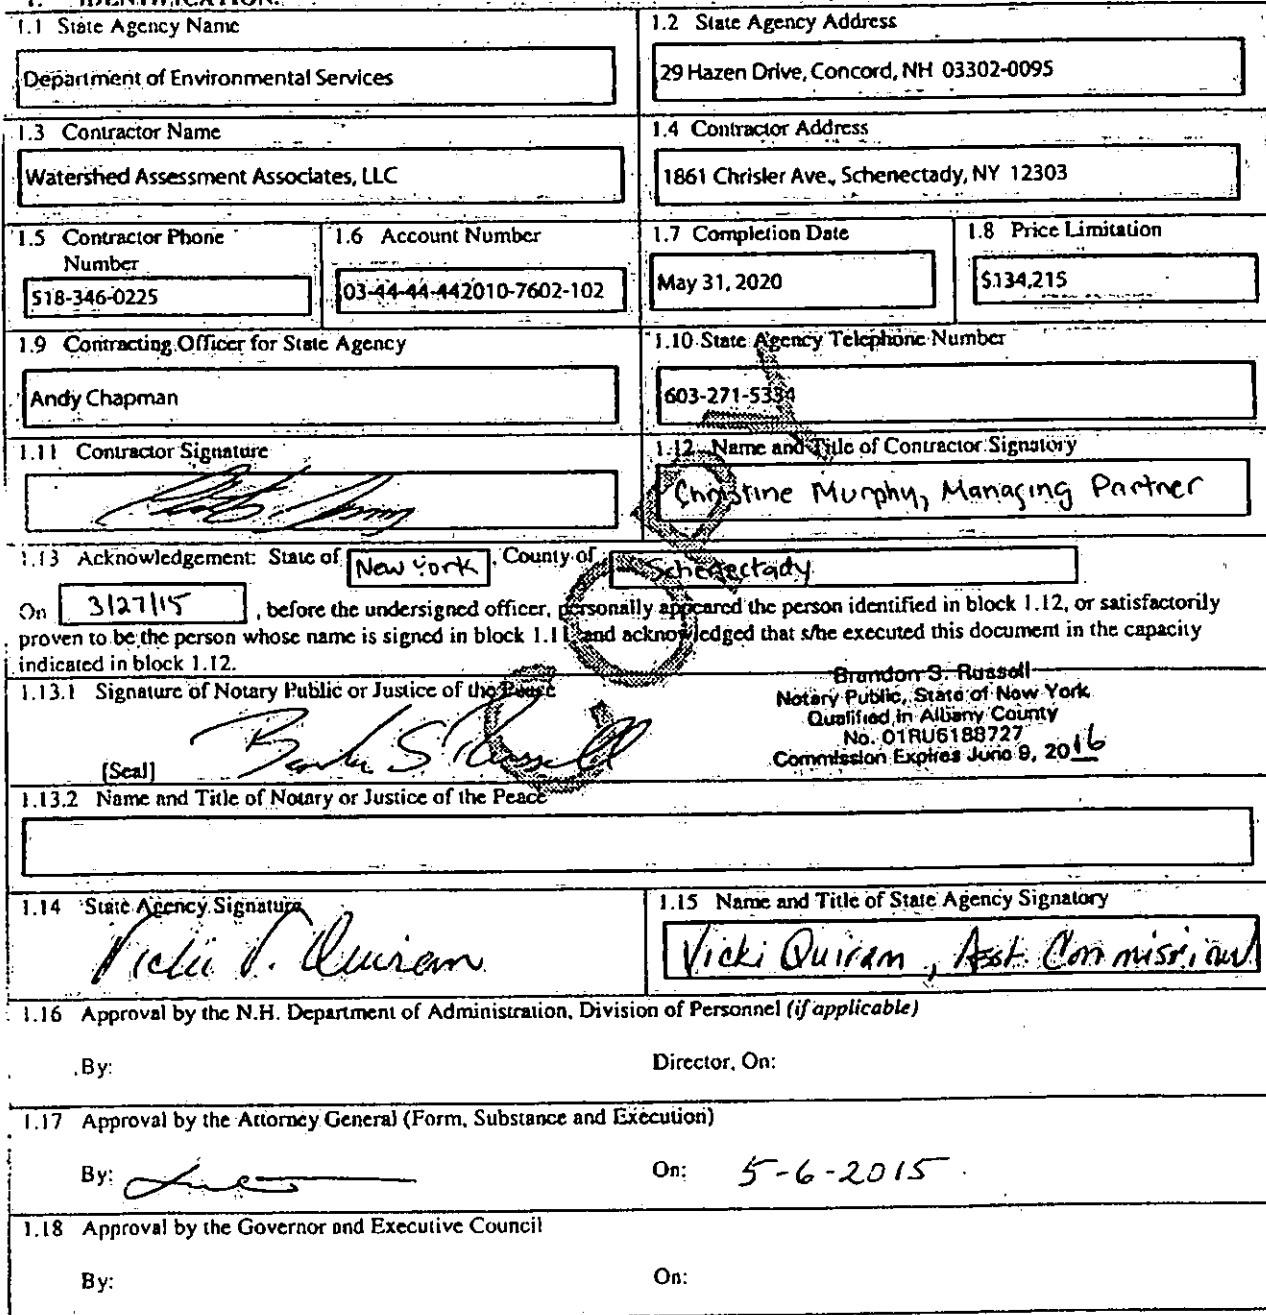 1. IDENTIFICATION.
1.1 State Agency Name
1.2 State Agency Address
Department of Environmental Services
29 Hazen Drive, Concord, NH 03302-0095
1.3 Contractor Name
1.4 Contractor Address
Watershed Assessment Associates, LLC
1861 Chrisler Ave., Schenectady, NY 12303
1.5 Contractor Phone
Number
1.6 Account Number
1.7 Completion Date
1.8 Price Limitation
518-346-0225
03-44-44-442010-7602-102
May 31, 2020
$134,215
1.9 Contracting Officer for State Agency
1.10 State Agency Telephone Number
Andy Chapman
603-271-5334
1.11 Contractor Signature
1.12 Name and Title of Contractor Signatory
Christine Murphy, Managing Partner
1.13 Acknowledgement: State of New York, County of Schenectady
On 3/27/15, before the undersigned officer, personally appeared the person identified in block 1.12, or satisfactorily
proven to be the person whose name is signed in block 1.11, and acknowledged that s/he executed this document in the capacity
indicated in block 1.12.
1.13.1 Signature of Notary Public or Justice of the Peace
Brandon S Russell
[Seal]
Brandon S. Russell
Notary Public, State of New York
Qualified in Albany County
No. 01RU6188727
Commission Expires June 9, 2016
1.13.2 Name and Title of Notary or Justice of the Peace
1.14 State Agency Signature
1.15 Name and Title of State Agency Signatory
Vicki V. Quiram
Vicki Quiram, Asst. Commissioner
1.16 Approval by the N.H. Department of Administration, Division of Personnel (if applicable)
By:
Director, On:
1.17 Approval by the Attorney General (Form, Substance and Execution)
By:
On: 5-6-2015
1.18 Approval by the Governor and Executive Council
By:
On: